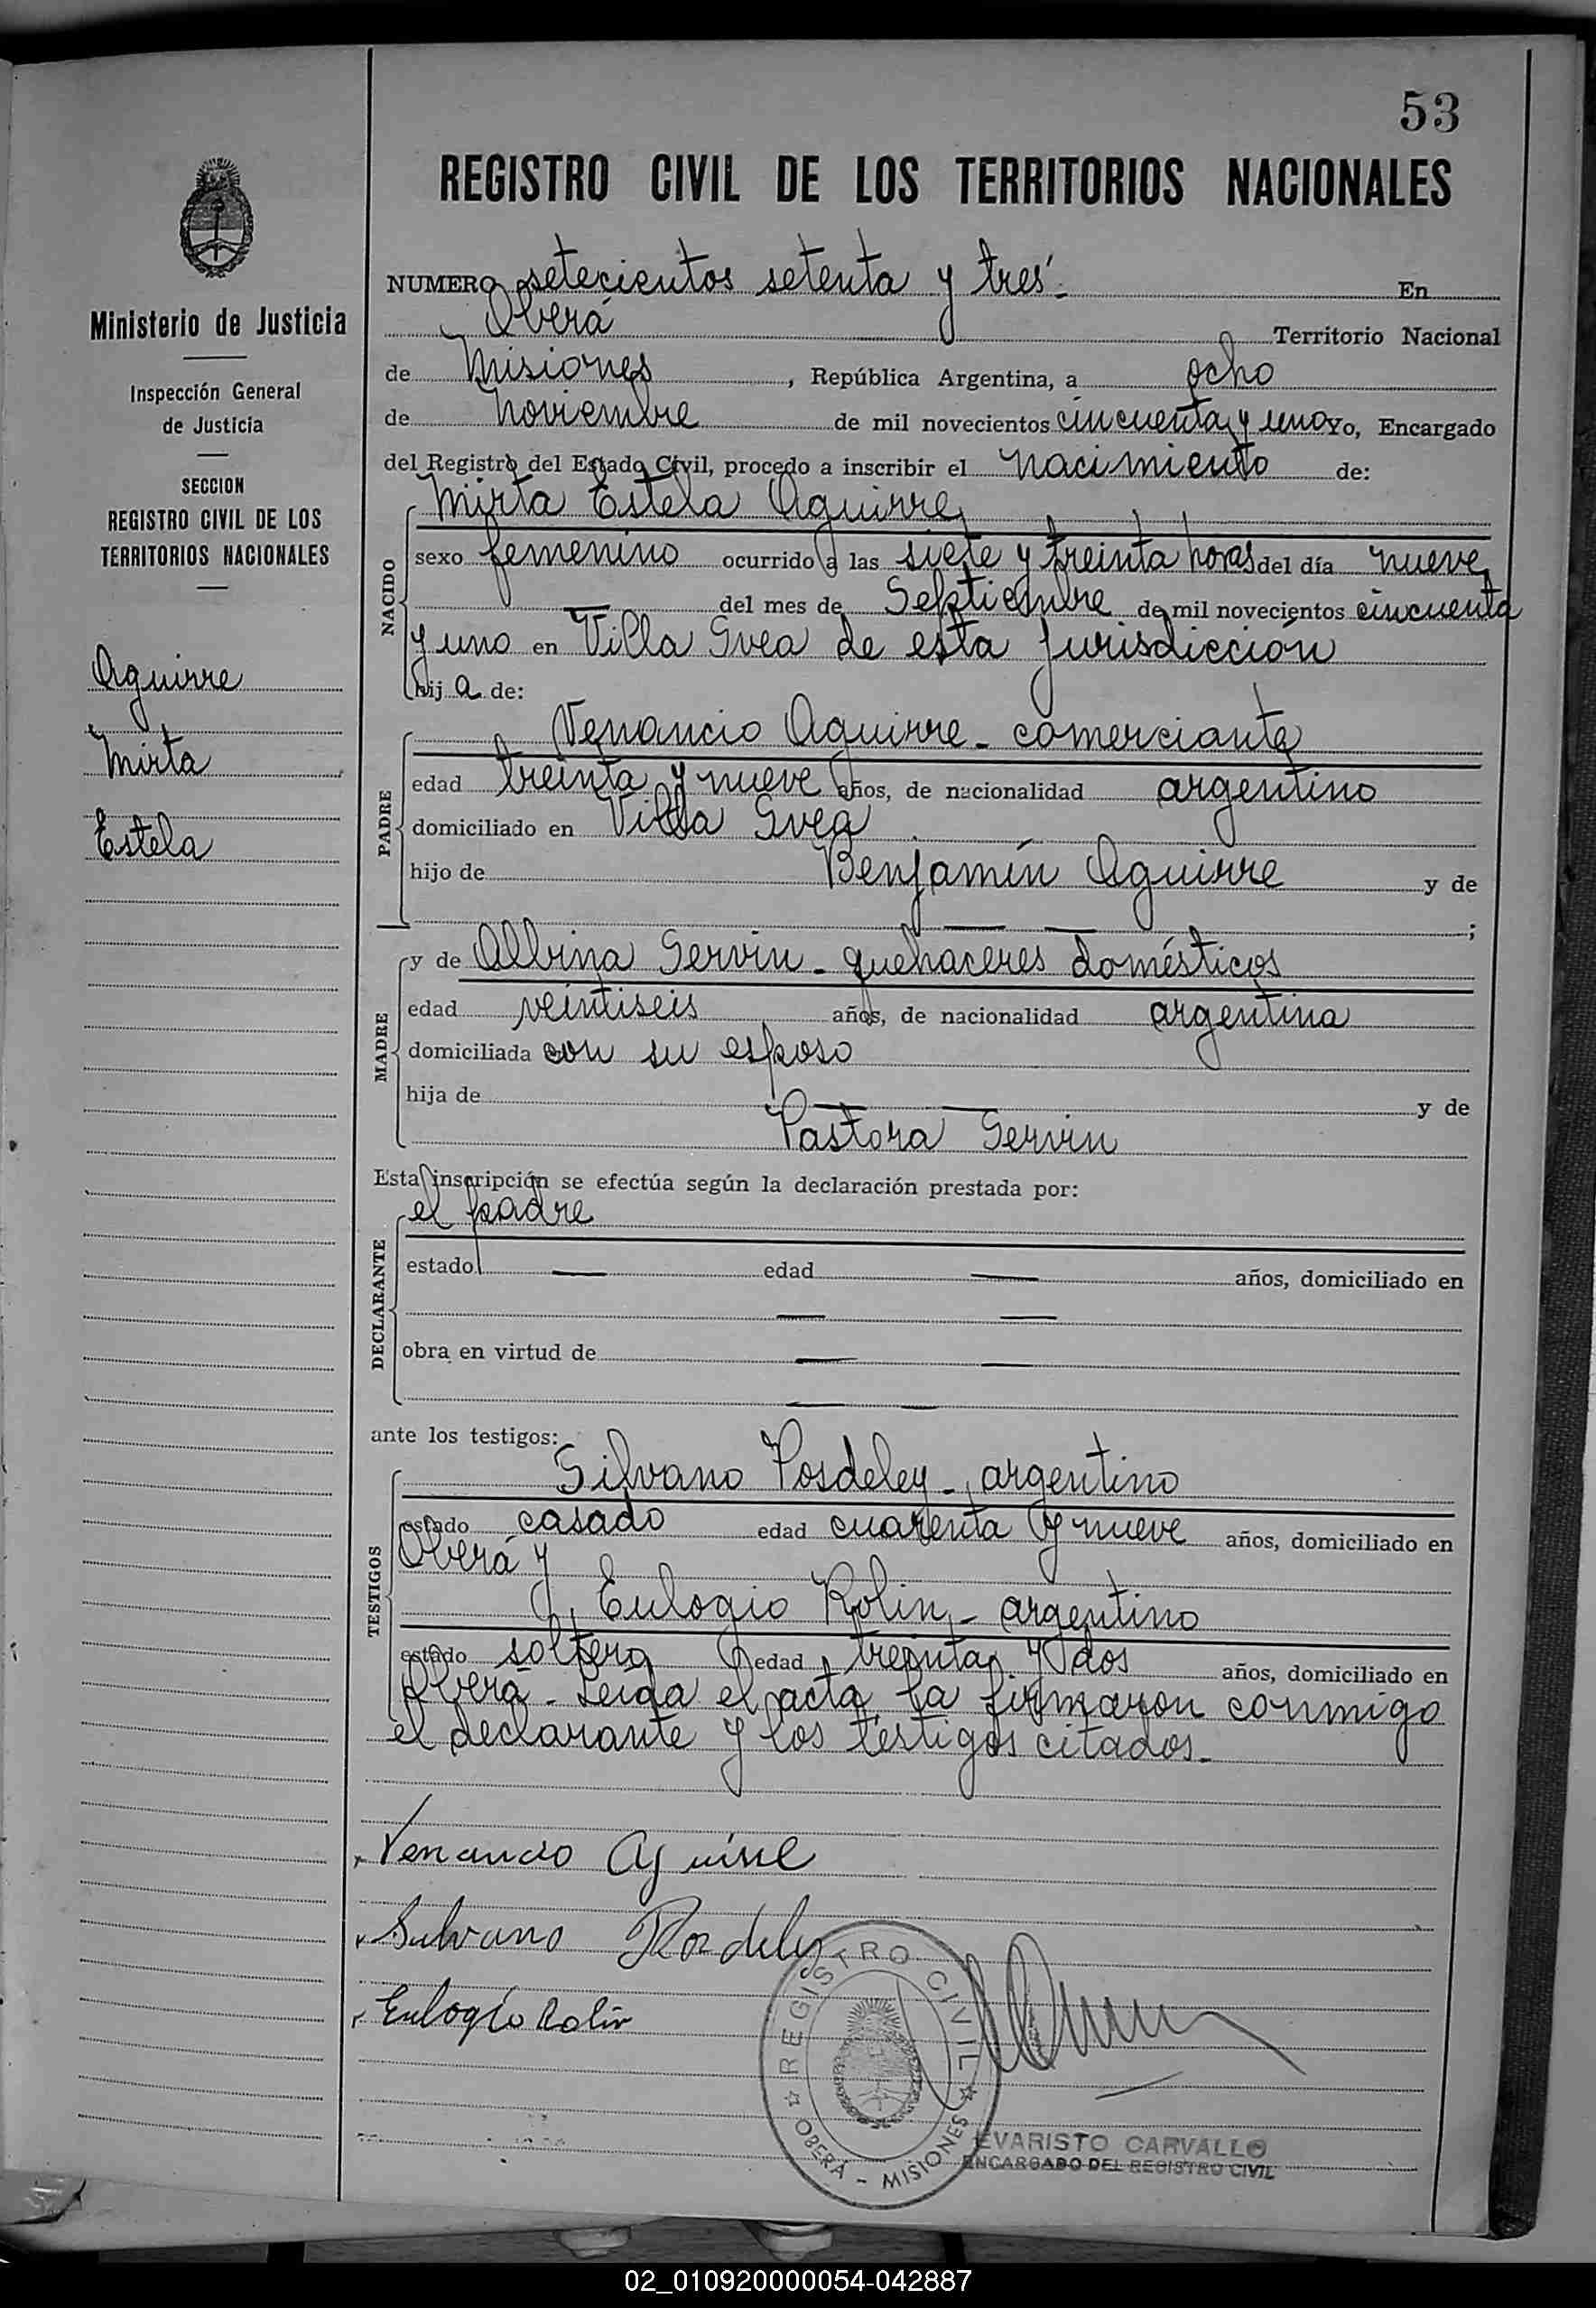 53
REGISTRO CIVIL DE LOS TERRITORIOS NACIONALES
Ministerio de Justicia
Inspección General
de Justicia
SECCION
REGISTRO CIVIL DE LOS
TERRITORIOS NACIONALES
Aguirre
Mirta
Estela
NUMERO setecientos setenta y tres.- En
Oberá Territorio Nacional
de Misiones, República Argentina, a ocho
de Noviembre de mil novecientos cincuenta y uno Yo, Encargado
del Registro del Estado Civil, procedo a inscribir el nacimiento de:
NACIDO
Mirta Estela Aguirre
sexo femenino ocurrido a las siete y treinta horas del día nueve
— del mes de Septiembre de mil novecientos cincuenta
y uno en Villa Svea de esta jurisdicción
hij a de:
PADRE
Venancio Aguirre - comerciante
edad treinta y nueve años, de nacionalidad argentino
domiciliado en Villa Svea
hijo de Benjamín Aguirre y de
— — ;
MADRE
y de Albina Servin - quehaceres domésticos
edad veintiseis años, de nacionalidad argentina
domiciliada con su esposo
hija de — — y de
Pastora Servin
Esta inscripción se efectúa según la declaración prestada por:
DECLARANTE
el padre
estado — edad — años, domiciliado en
— —
obra en virtud de — —
— —
ante los testigos:
TESTIGOS
Silvano Posdeley - argentino
estado casado edad cuarenta y nueve años, domiciliado en
Oberá y
Eulogio Rolin - argentino
estado soltero edad treinta y dos años, domiciliado en
Oberá - Leída el acta la firmaron conmigo
el declarante y los testigos citados.-
Venancio Aguirre
Silvano Posdeley
Eulogio Rolin
REGISTRO CIVIL
OBERÁ - MISIONES
EVARISTO CARVALLO
ENCARGADO DEL REGISTRO CIVIL
02_010920000054-042887